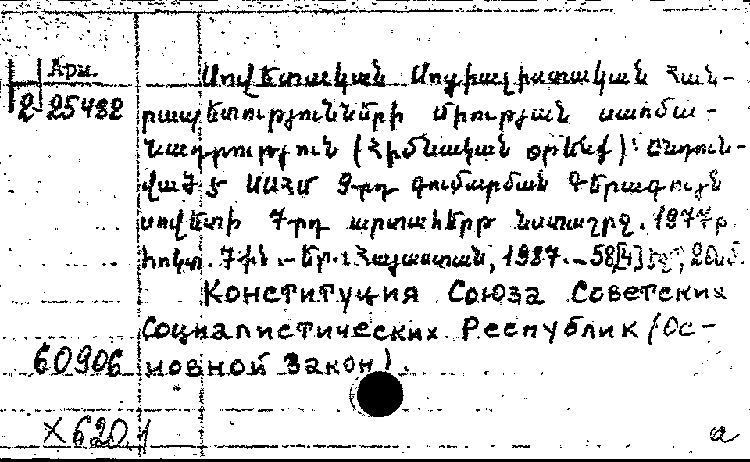 Арм.
2-25482
Սովետական Սոցիալիստական Հան-
րապետությունների Միության սահմա-
նադրություն (Հիմնական օրենք): Ընդուն-
ված է ՍՍՀՄ 9-րդ գումարման Գերագույն
սովետի 7-րդ արտահերթ նստաշրջ. 1977թ
հոկտ. 7-ին .- Եր.: Հայաստան, 1987.- 58[4] էջ, 20սմ.
Конституция Союза Советских
Социалистических Республик (Ос-
60906 новной Закон).
X620.1
а